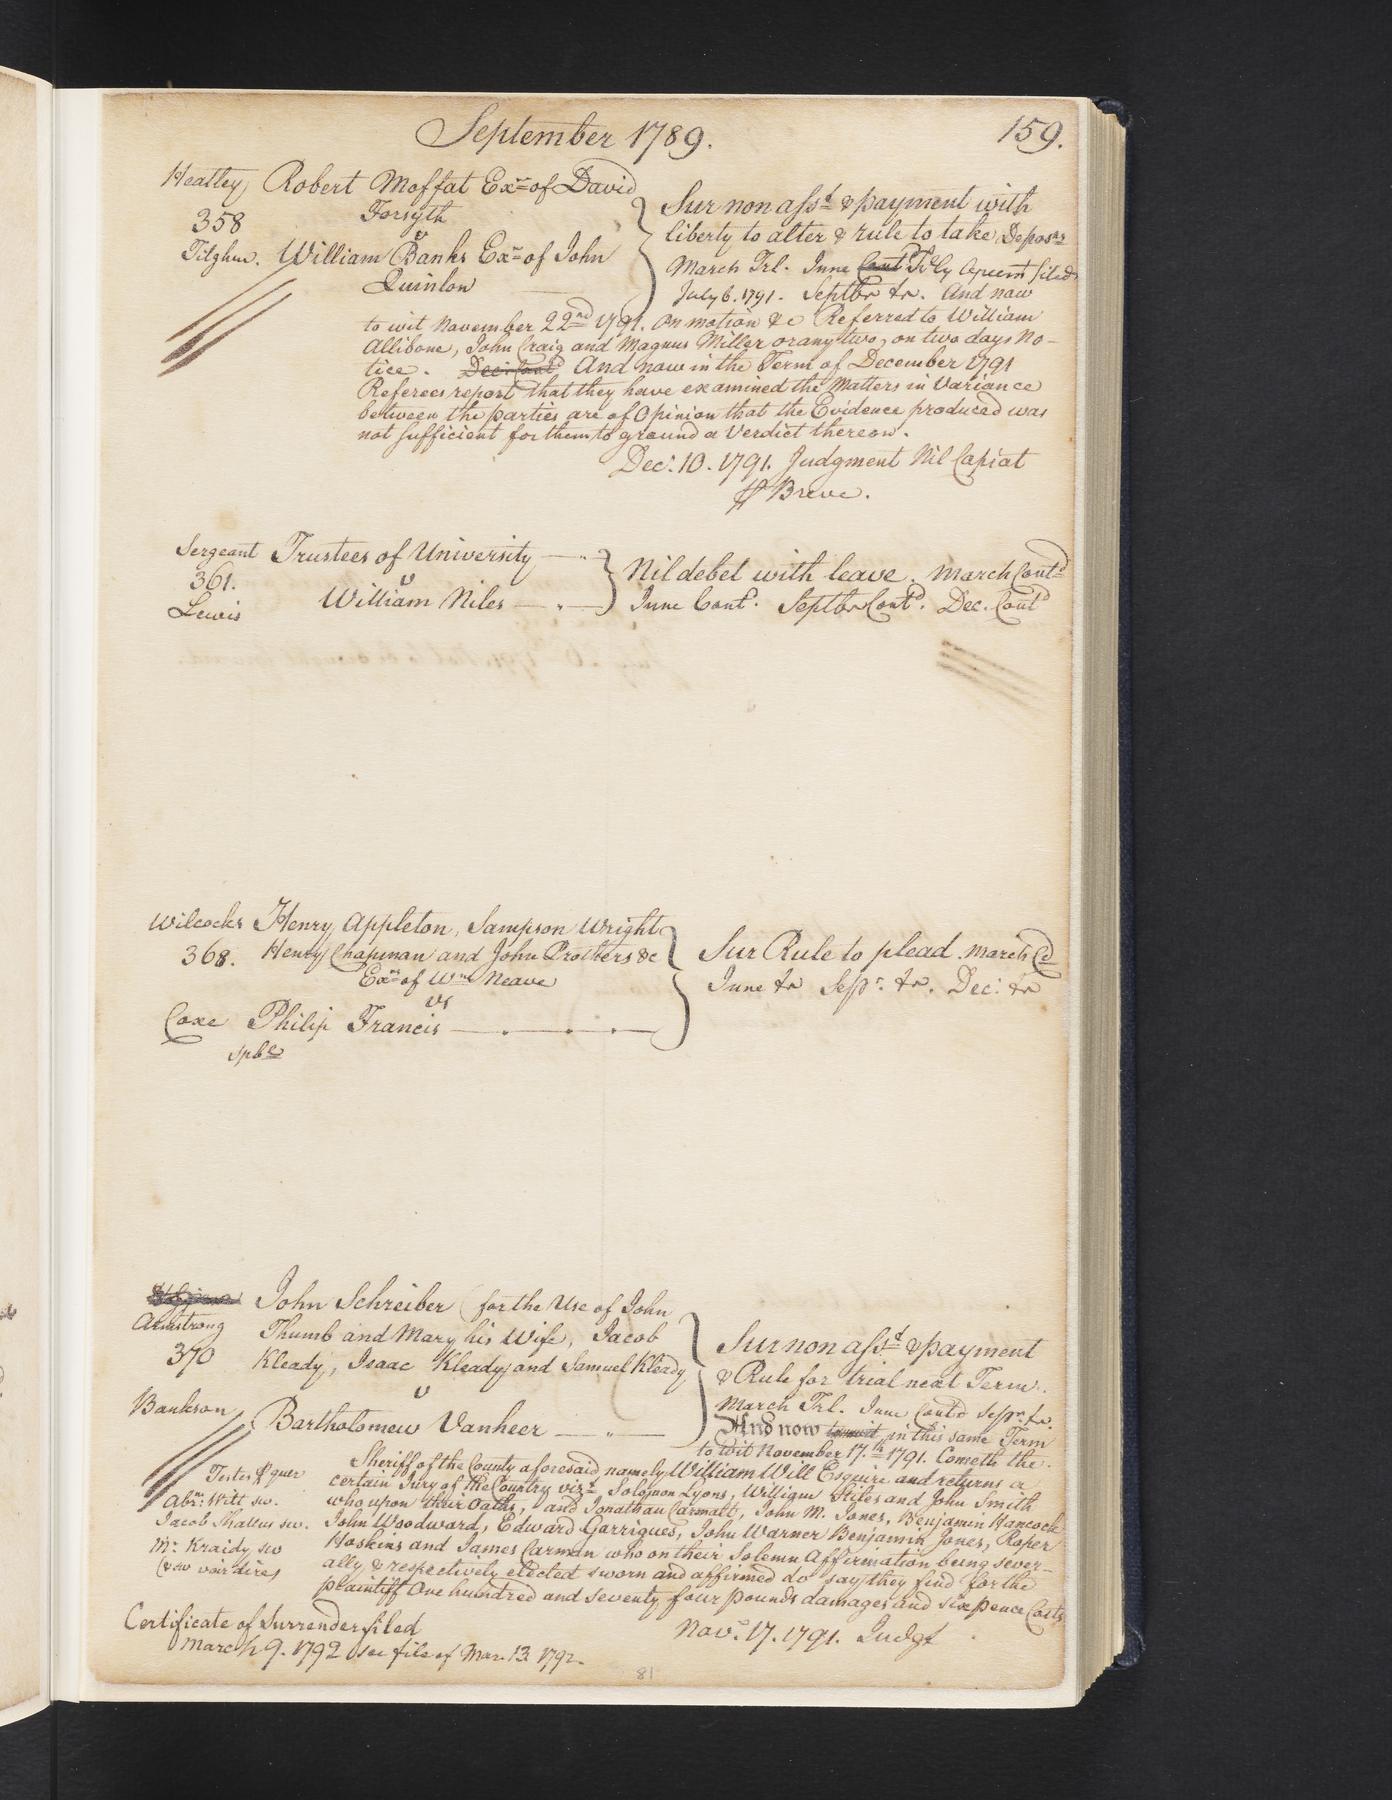 September 1789.
159.
Heatley Robert Moffat Exr of David
Forsyth
358
v
Tilghm. William Banks Exr of John
Quinlon
Sur non asst & payment with
liberty to alter & rule to take Deposns
March Trl. June Cont filed
July 6. 1791. Septbr tr. And now
to wit November 22nd 1791. on motion &c Referred to William
Allibone, John Craig and Magnus Miller or any two, on two days No-
tice. Decr Cont And now in the Term of December 1791
Referees report that they have examined the Matters in Variance
between the parties are of Opinion that the Evidence produced was
not sufficient for them to ground a Verdict thereon.
Decr. 10. 1791. Judgment Nil Capiat
⅌ Breve.
Sergeant Trustees of University
361. v
Lewis William Niles
Nil debet with leave. March Contd
June Contd. Septbr Contd. Dec. Contd
Wilcocks Henry Appleton, Sampson Wright
368. Henry Chapman and John Brothers &c
Exrs of Wm Neave
vs
Coxe Philip Francis
spbl
Sur Rule to plead. March Cd
June tr Sepr. tr. Dec: tr
John Schreiber (for the Use of John
Armstrong Thumb and Mary his Wife, Jacob
370 Kleady, Isaac Kleady and Samuel Kleady
v
Bankson Bartholomew Vanheer
Sur non asst & payment
& Rule for trial next Term.
March Trl. June Contd Sepr. tr
And now to wit in this same Term
to wit November 17.th 1791. Cometh the
Sheriff of the County aforesaid namely William Will Esquire and returns a
certain Jury of the Country vizt. Solomon Lyons, William Stiles and John Smith
who upon their Oaths, and Jonathan Carmalt, John M. Jones, Benjamin Hancock
John Woodward, Edward Garrigues, John Warner Benjamin Jones, Raper
Hoskins and James Carman who on their Solemn Affirmation being sever-
ally & respectively elected sworn and affirmed do say they find for the
plaintiff One hundred and seventy four pounds damages and six pence Costs
Testes ⅌ quer
Abrm: Witt sw.
Jacob Mattus sw.
Mr. Kraidy sw
(sw voir dire)
Novr. 17. 1791. Judgt
Certificate of Surrender filed
March 9. 1792 see file of Mar. 13. 1792.
81